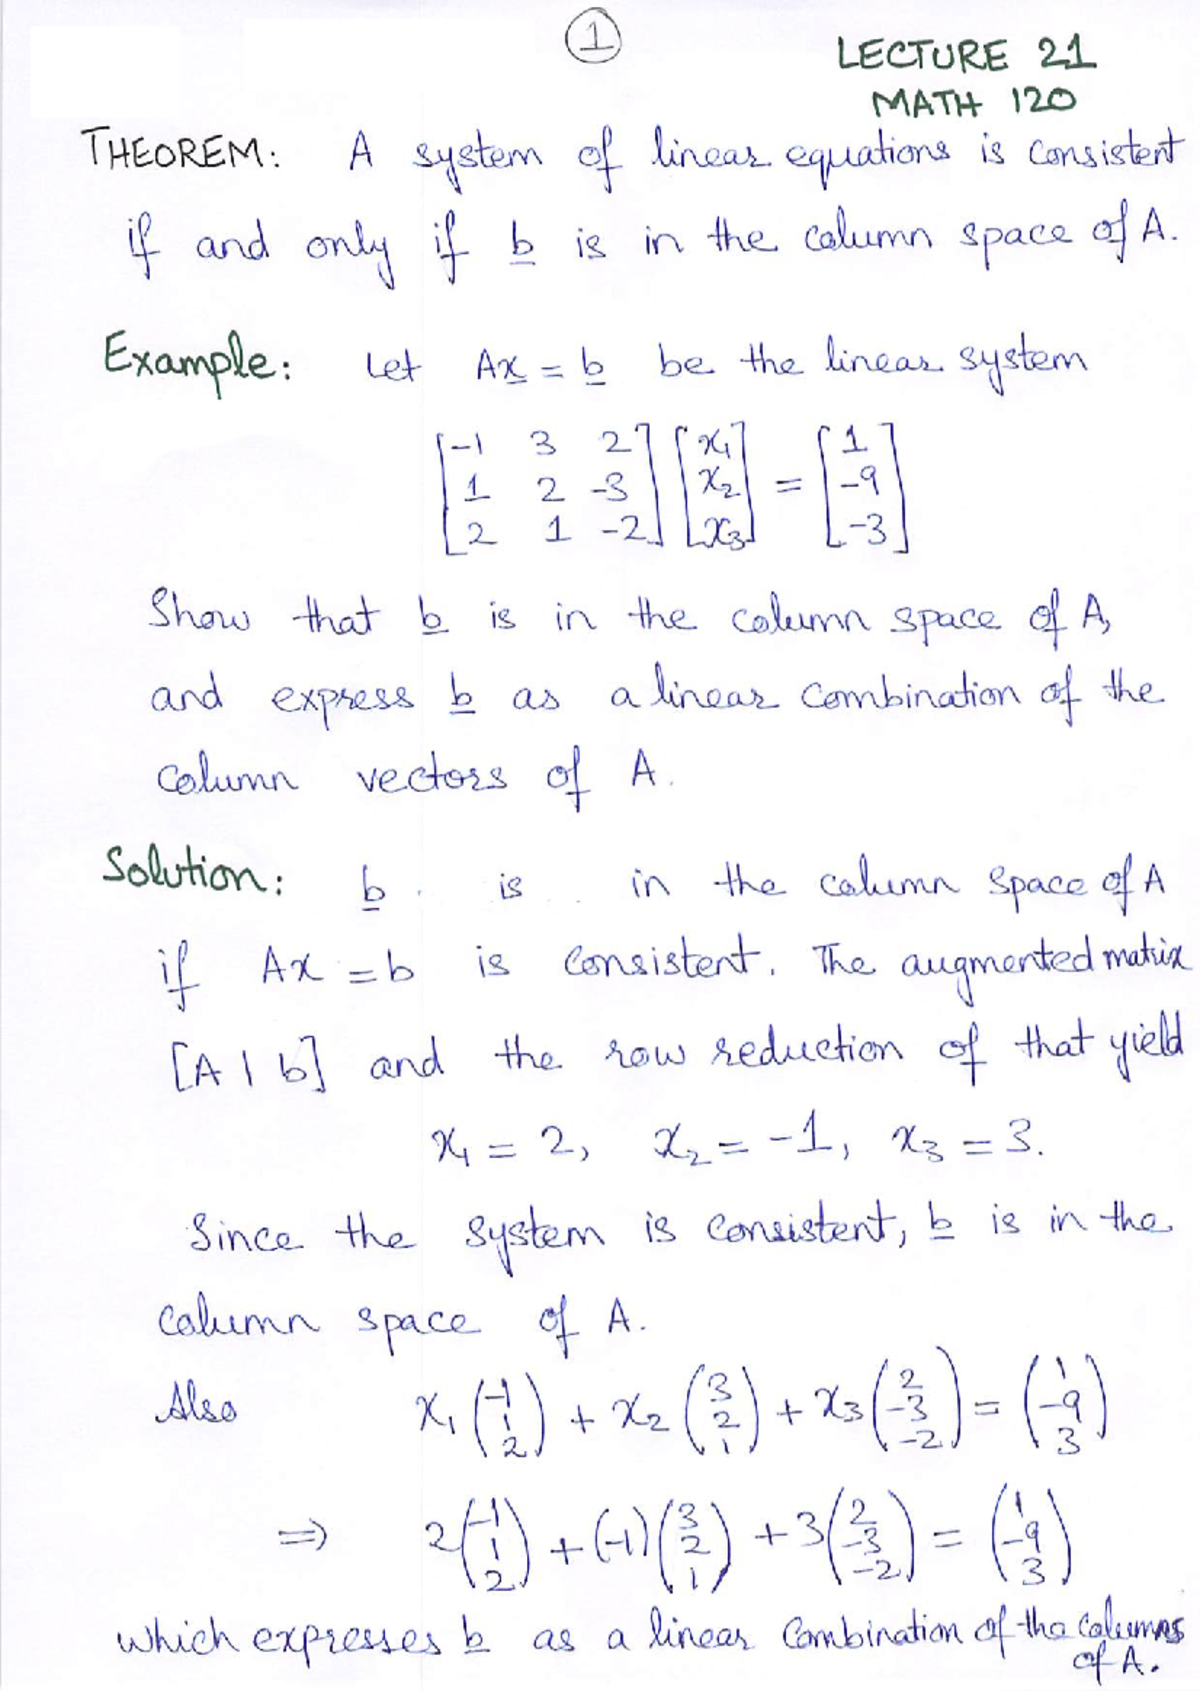 1
LECTURE 21
MATH 120
THEOREM: A system of linear equations is consistent
if and only if b is in the column space of A.
Example: Let Ax = b be the linear system
[-1 3 2] [x1] [1]
[1 2 -3] [x2] = [-9]
[2 1 -2] [x3] [-3]
Show that b is in the column space of A,
and express b as a linear combination of the
column vectors of A.
Solution: b is in the column space of A
if Ax = b is consistent. The augmented matrix
[A | b] and the row reduction of that yield
x1 = 2, x2 = -1, x3 = 3.
Since the system is consistent, b is in the
column space of A.
Also x1 (-1 1 2) + x2 (3 2 1) + x3 (2 -3 -2) = (1 -9 3)
⇒ 2 (-1 1 2) + (-1) (3 2 1) + 3 (2 -3 -2) = (1 -9 3)
which expresses b as a linear combination of the columns
of A.